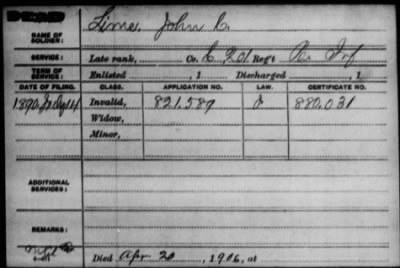 DEAD
NAME OF SOLDIER: Lime, John C.
SERVICE: Late rank, Co. E 201 Reg't Pa Inf
TERM OF SERVICE: Enlisted , 1 Discharged , 1
DATE OF FILING. CLASS. APPLICATION NO. LAW. CERTIFICATE NO.
1890 July 14 Invalid, 821,587 J 880,031
Widow,
Minor,
ADDITIONAL SERVICES:
REMARKS:
Died Apr 20, 1906, at